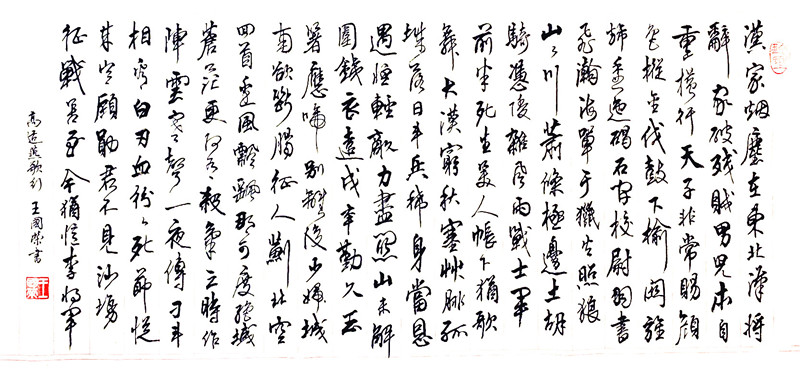 漢家烟塵在東北漢將
辭家破残賊男兒本自
重横行天子非常賜顔
色摐金伐鼓下榆関旌
旆逶迤碣石间校尉羽書
飛瀚海單于獵火照狼
山々川蕭條極邊土胡
騎憑陵雜風雨戰士軍
前半死生美人帳下猶歌
舞大漠窮秋塞草腓孤
城落日斗兵稀身當恩
遇恒輕敵力盡関山未解
圍鐵衣遠戍辛勤久玉
箸應啼别離後少婦城
南欲斷腸征人薊北空
回首邊風飄飄那可度絶域
蒼茫更何有殺氣三時作
陣雲寒聲一夜傳刁斗
相看白刃血紛々死節從
來豈顧勛君不見沙場
征戰苦至今猶憶李將軍
高适燕歌行 王國榮書